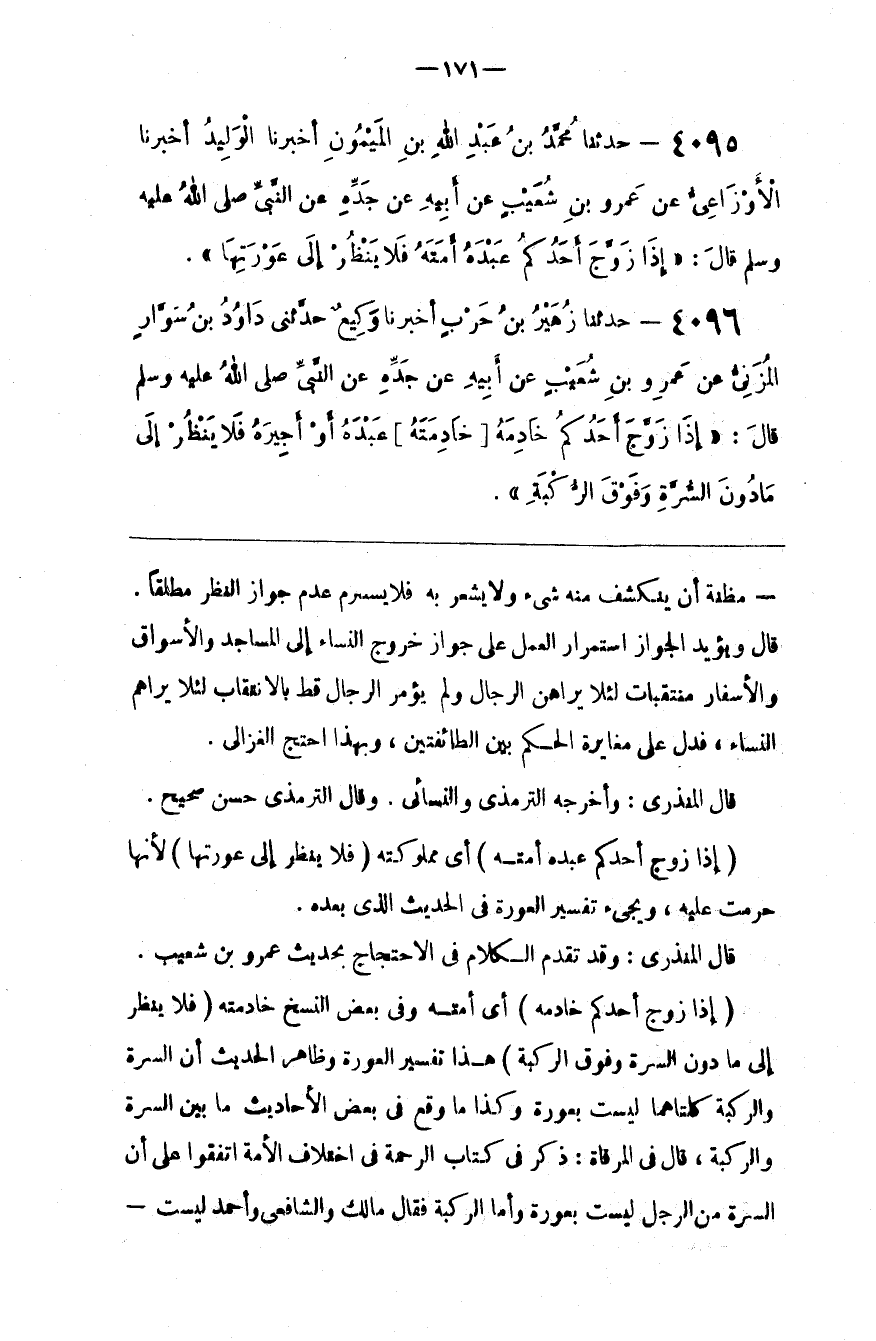 —١٧١—
٤٠٩٥ — حدثنا مُحَمَّدُ بنُ عَبْدِ اللهِ بنِ المَيْمُونِ أخبرنا الْوَلِيدُ أخبرنا
الْأَوْزَاعِيُّ عن عَمرو بنِ شُعَيْبٍ عن أَبِيهِ عن جَدِّهِ عن النَّبيِّ صلى اللهُ عليه
وسلم قالَ : « إِذَا زَوَّجَ أَحَدُكُمُ عَبْدَهُ أَمَتَهُ فَلَا يَنْظُرْ إِلَى عَوْرَتِهَا » .
٤٠٩٦ — حدثنا زُهَيْرُ بنُ حَرْبٍ أخبرنا وَكِيعٌ حدَّثنى دَاوُدُ بنُ سَوَّارٍ
المُزَنِيُّ عن عَمرِو بنِ شُعَيْبٍ عن أَبِيهِ عن جَدِّهِ عن النَّبيِّ صلى اللهُ عليه وسلم
قالَ : « إِذَا زَوَّجَ أَحَدُكُمُ خَادِمَهُ [ خَادِمَتَهُ ] عَبْدَهُ أَوْ أَجِيرَهُ فَلَا يَنْظُرْ إِلَى
مَادُونَ السُّرَّةِ وَفَوْقَ الرُّكْبَةِ » .
— مظنة أن ينكشف منه شىء ولايشعر به فلايستلزم عدم جواز النظر مطلقاً .
قال ويؤيد الجواز استمرار العمل على جواز خروج النساء إلى المساجد والأسواق
والأسفار منتقبات لئلا يراهن الرجال ولم يؤمر الرجال قط بالانتقاب لئلا يراهم
النساء ، فدل على مغايرة الحكم بين الطائفتين ، وبهذا احتج الغزالى .
قال المنذرى : وأخرجه الترمذى والنسائى . وقال الترمذى حسن صحيح .
( إذا زوج أحدكم عبده أمته ) أى مملوكته ( فلا ينظر إلى عورتها ) لأنها
حرمت عليه ، ويجىء تفسير العورة فى الحديث الذى بعده .
قال المنذرى : وقد تقدم الكلام فى الاحتجاج بحديث عمرو بن شعيب .
( إذا زوج أحدكم خادمه ) أى أمته وفى بعض النسخ خادمته ( فلا ينظر
إلى ما دون السرة وفوق الركبة ) هذا تفسير العورة وظاهر الحديث أن السرة
والركبة كلتاهما ليست بعورة وكذا ما وقع فى بعض الأحاديث ما بين السرة
والركبة ، قال فى المرقاة : ذكر فى كتاب الرحمة فى اختلاف الأمة اتفقوا على أن
السرة من الرجل ليست بعورة وأما الركبة فقال مالك والشافعى وأحمد ليست —